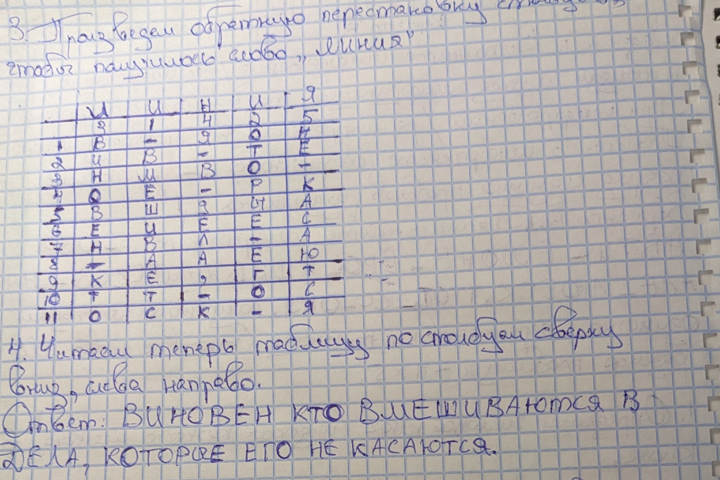 3. Произведем обратную перестановку
чтобы получилось слово „линия"
И И Н И Я
3 1 4 2 5
1 В - Я О Н
2 И В - Т Е
3 Н М В О -
4 О Е - Р К
5 В Ш Д Ы А
6 Е И Е Е С
7 Н В Л - А
8 - А А Е Ю
9 К Ю , Г Т
10 Т Т - О С
11 О С К - Я
4. Читаем теперь таблицу по столбцам сверху
вниз, слева направо.
Ответ: ВИНОВЕН КТО ВМЕШИВАЮТСЯ В
ДЕЛА, КОТОРЫЕ ЕГО НЕ КАСАЮТСЯ.